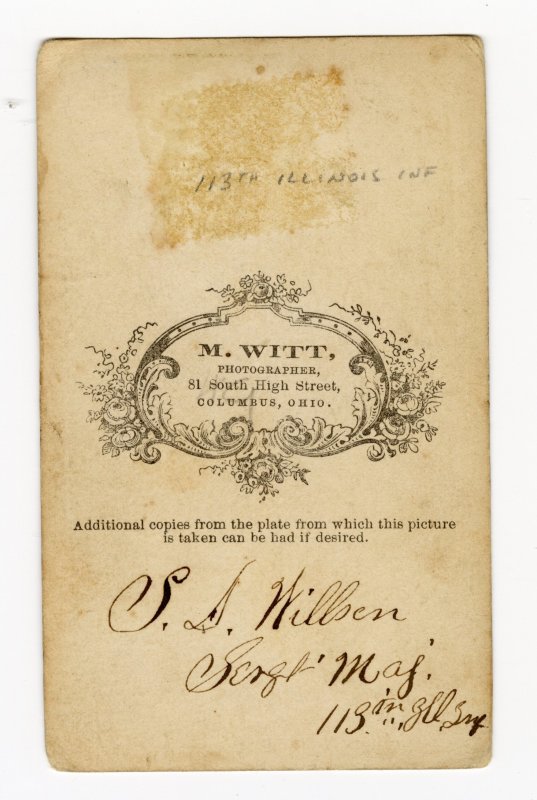 113TH ILLINOIS INF
M. WITT,
PHOTOGRAPHER,
81 South High Street,
COLUMBUS, OHIO.
Additional copies from the plate from which this picture
is taken can be had if desired.
S. D. Willsen
Sergt Maj.
113th Ill, Inf